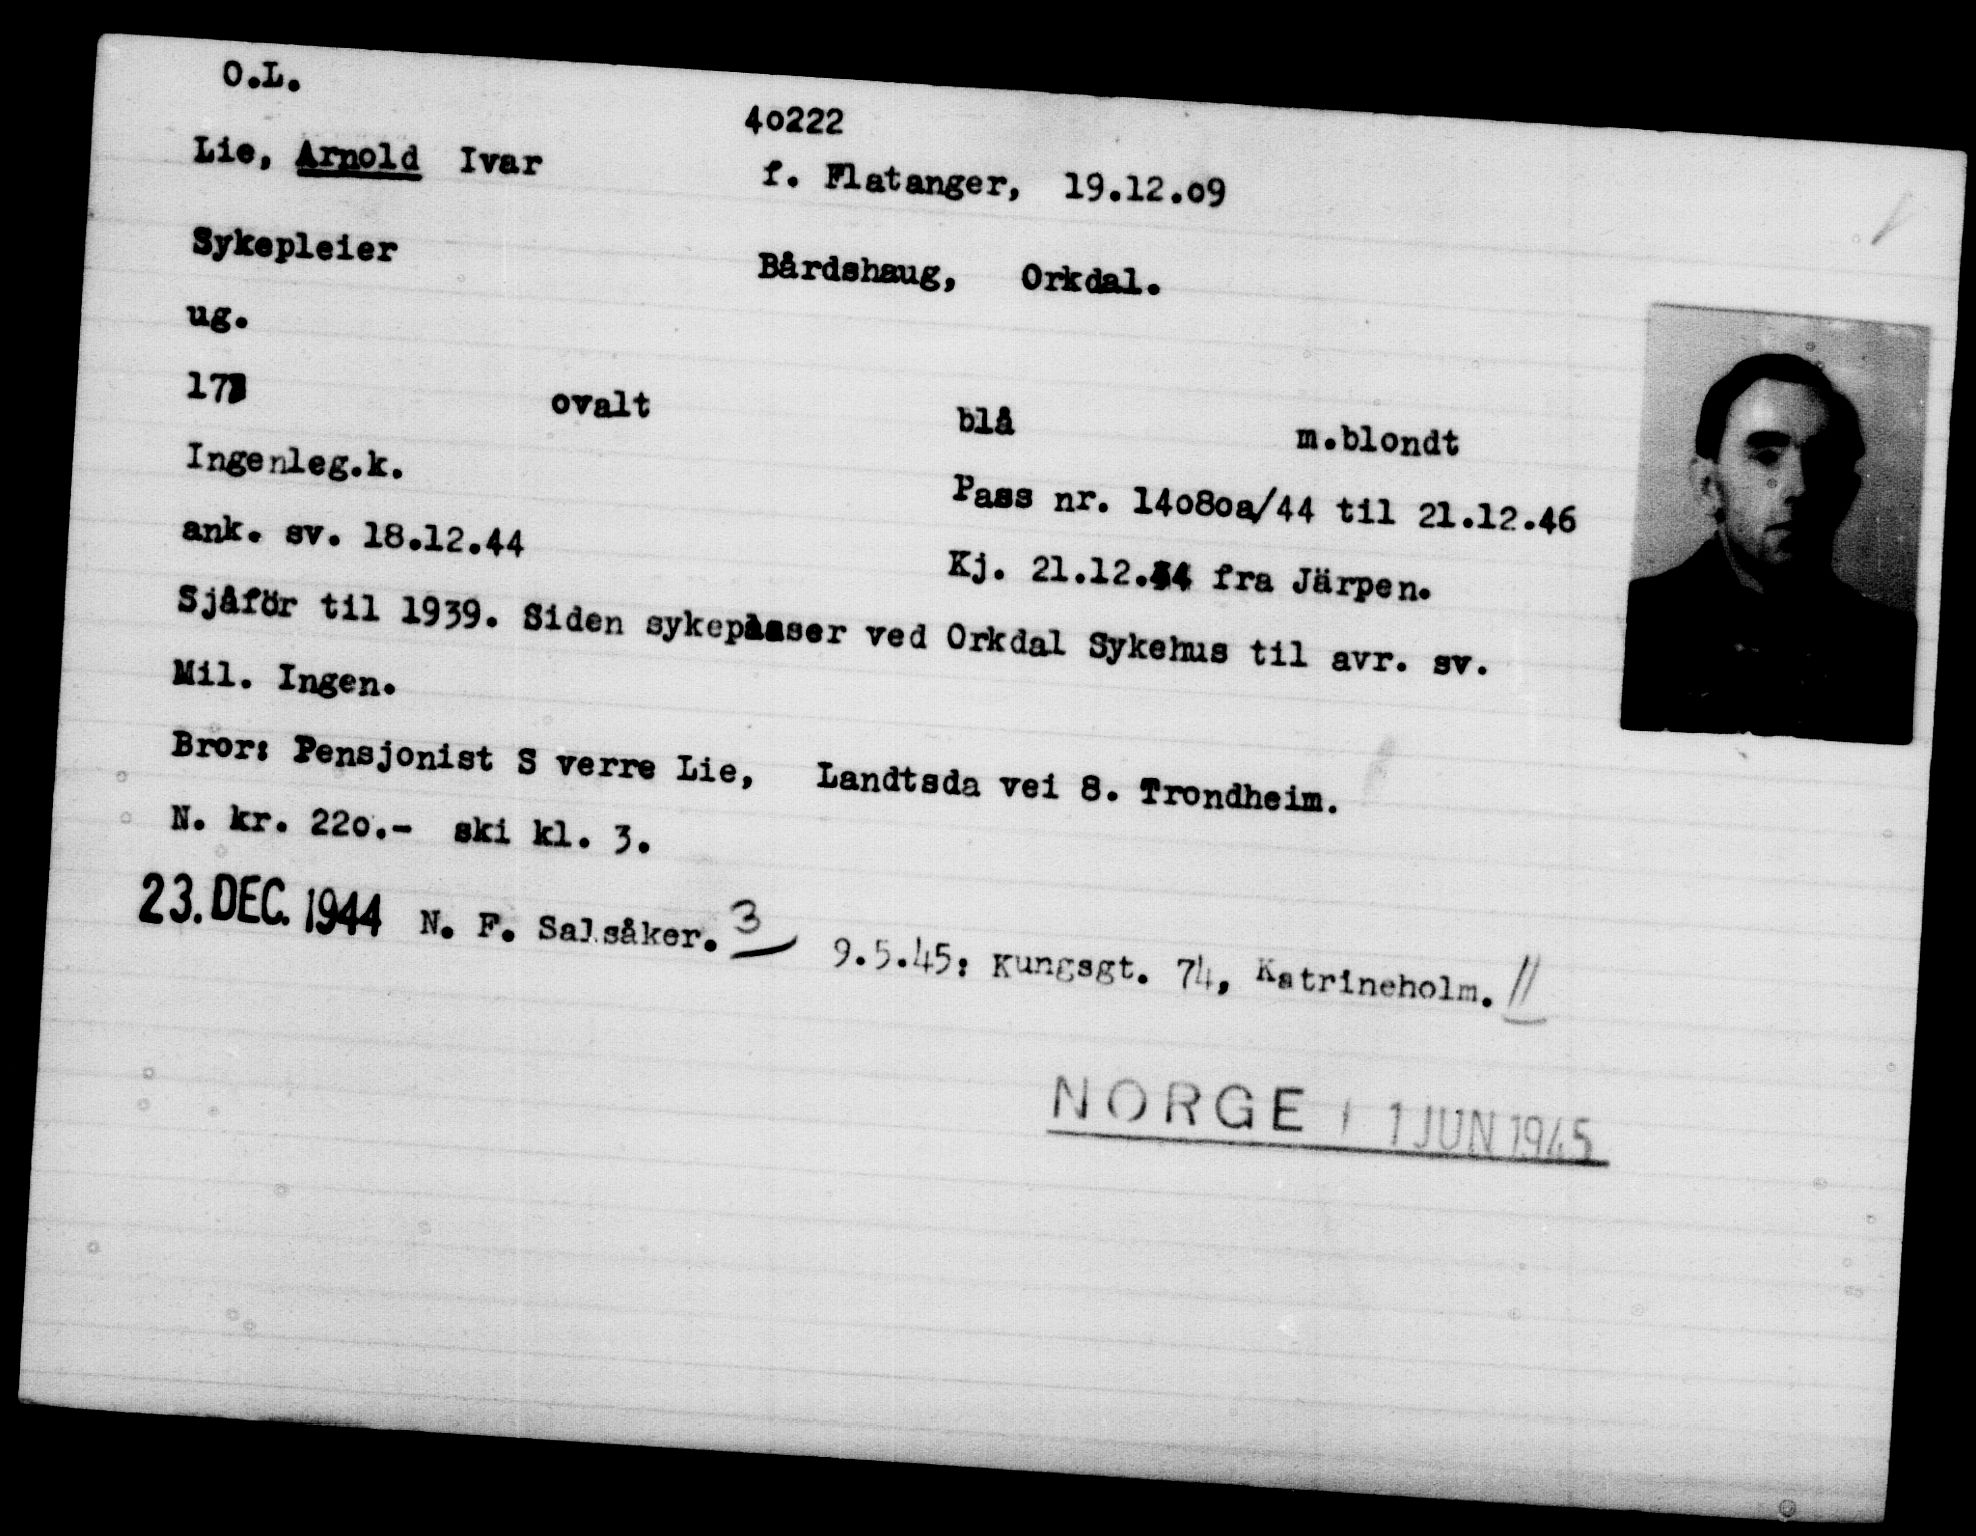 O.L.
40222
Lie, Arnold Ivar f. Flatanger, 19.12.09
Sykepleier Bårdshaug, Orkdal.
ug.
ovalt blå m.blondt
Ingenleg.k. Pass nr. 14080a/44 til 21.12.46
ank. sv. 18.12.44 Kj. 21.12.44 fra Järpen.
Sjåför til 1939. Siden ved Orkdal Sykehus til avr. sv.
Mil. Ingen.
Bror: Pensjonist S verre Lie, Landtsda vei 8. Trondheim.
N. kr. 220.- ski kl. 3.
23. DEC. 1944 N. F. Salsåker. 3 9.5.45: Kungsgt. 74, Katrineholm. 11
NORGE 1 1 JUN 1945